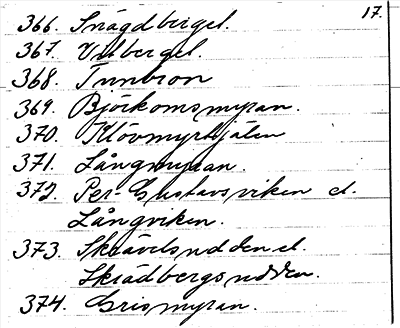 17.
366. Snägdberget.
367. Vitberget.
368. Tunbron
369. Björkomsmyran.
370. Klövmyrtjälen
371. Långmyran.
372. Per-Gustavsviken el.
Långviken.
373. el.
Skrädbergsudden.
374. Grismyran.